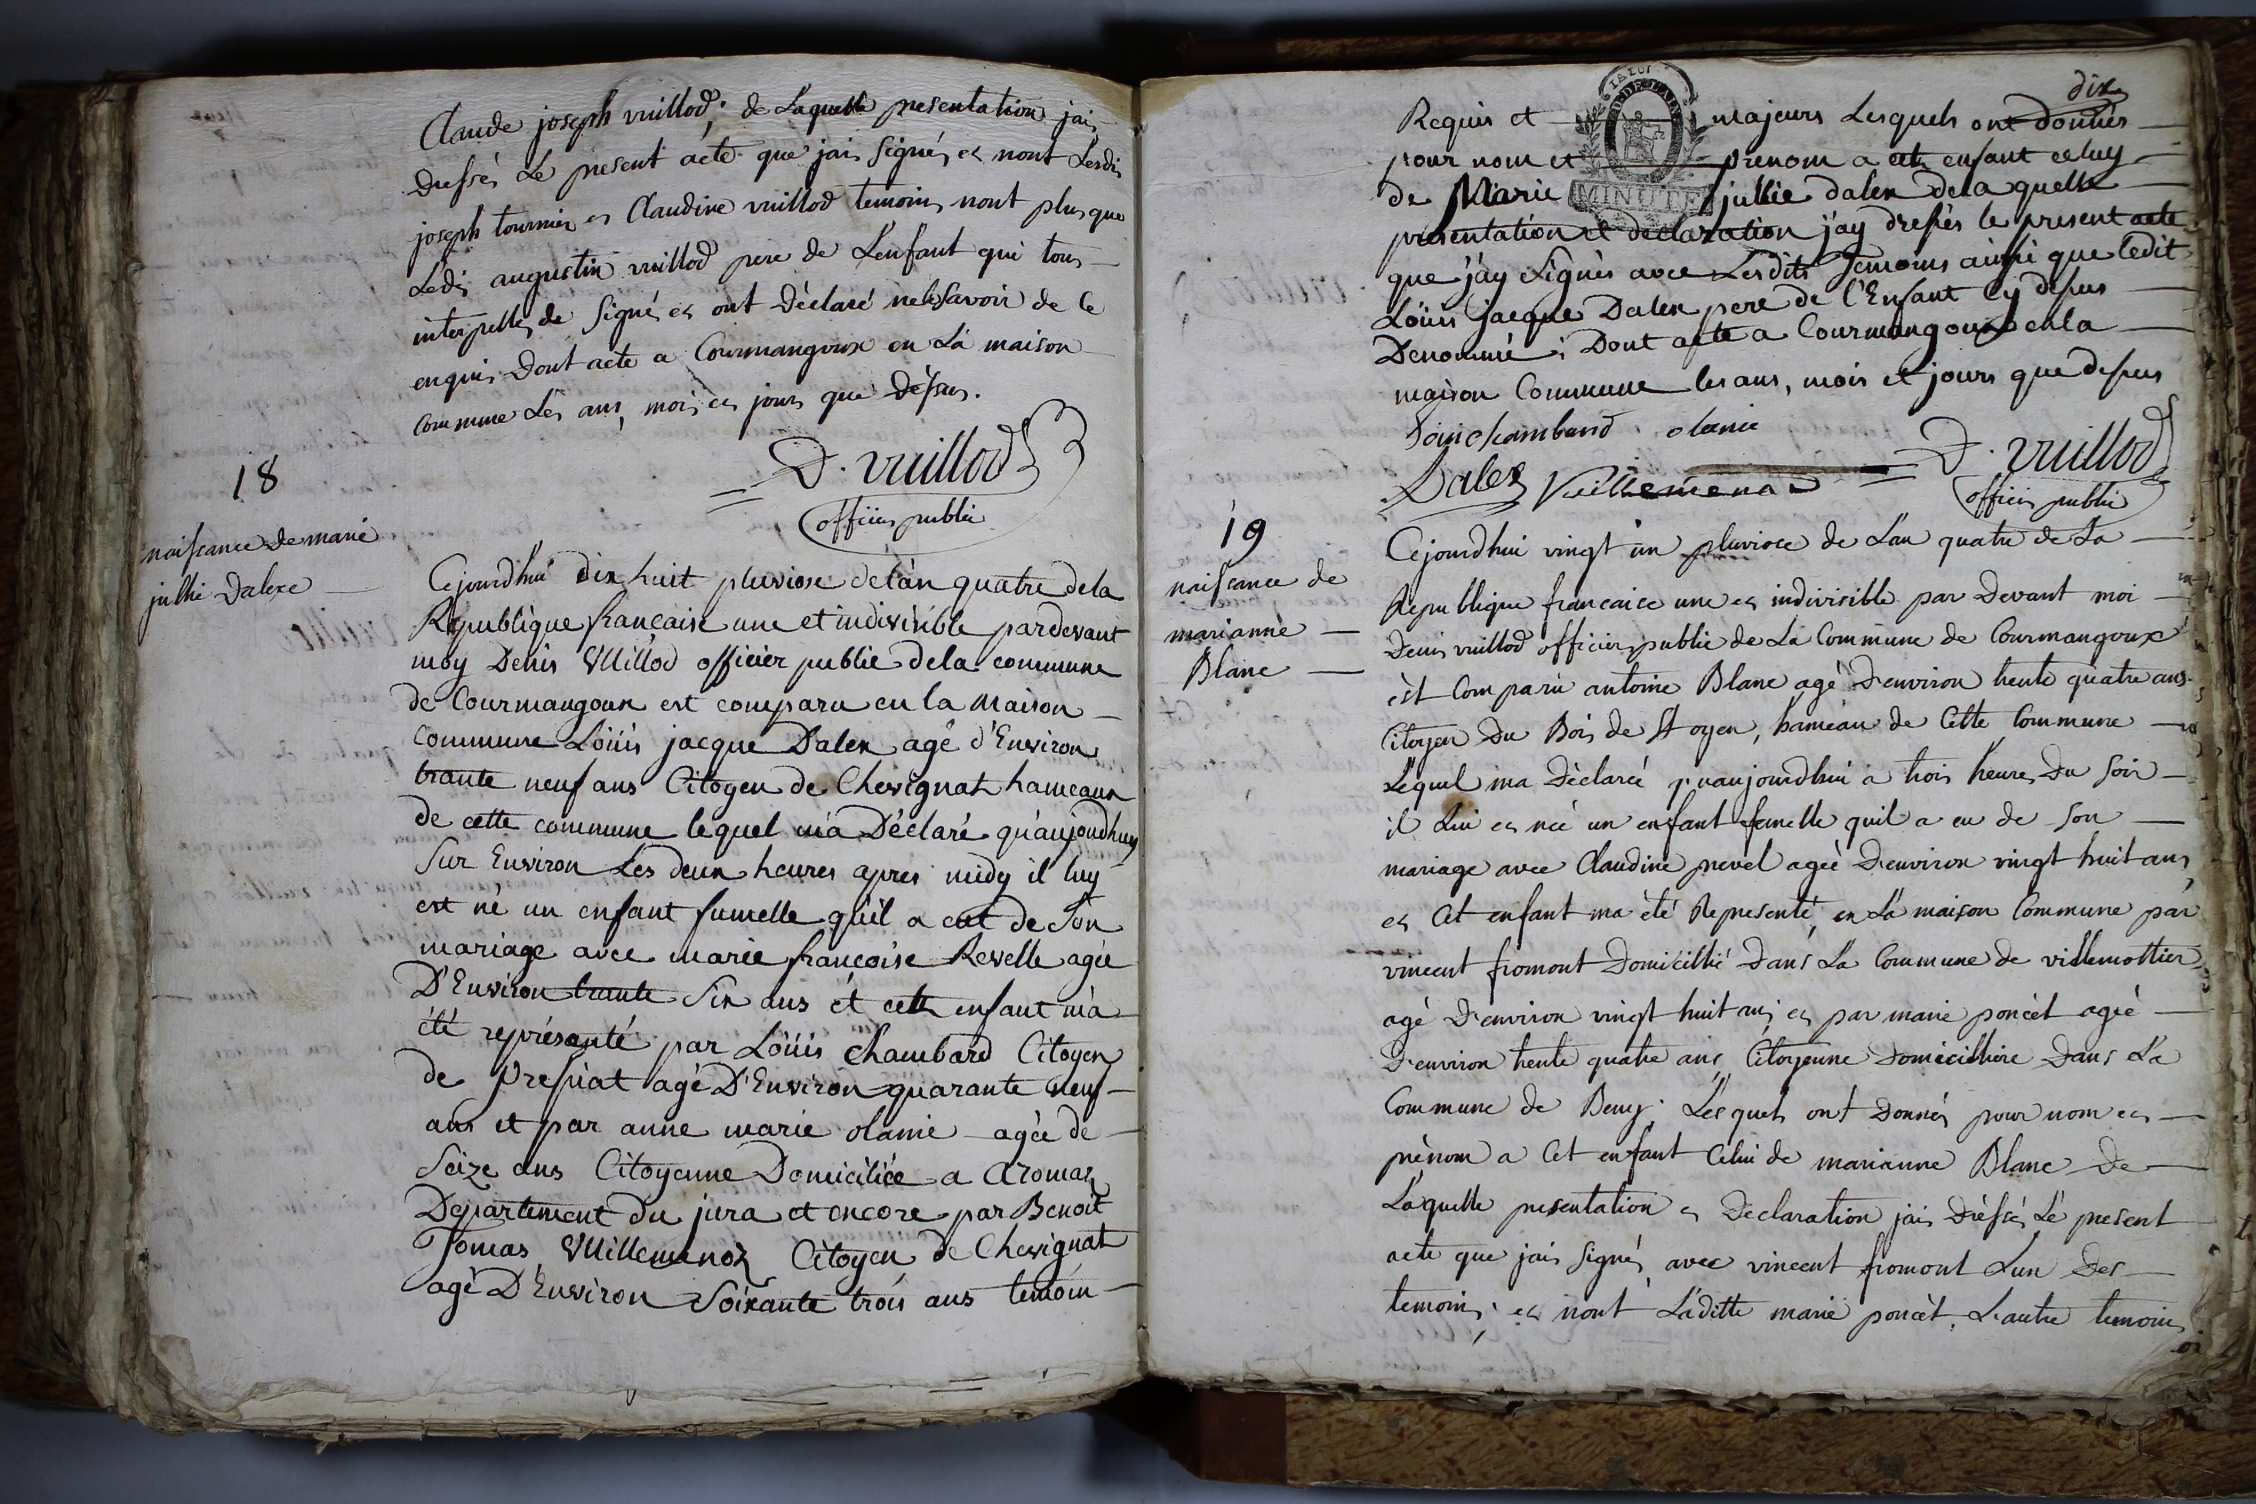 Claude joseph vuillod; de Laquelle presentation jais
dressés Le present acte que jais signés et nont Lesdis
joseph tournier et Claudine vuillod temoins nont plus que
Ledis augustin vuillod pere de L'enfant qui tous
interpelles de signé et ont Déclaré ne le savoir de ce
enquis Dont acte a Courmangoux en La maison
commune Les ans, mois et jours que Dessus.
D. vuillod
officier public
18
naissance de marie
jullie Dalexe
Cejourdhui dix huit pluviose de l'an quatre de la
République française une et indivisible pardevant
moy Denis Vuillod officier public de la commune
de Courmangoux est comparu en la Maison
Commune Loüis jacque Dalex agé d'Environ
trante neuf ans Citoyen de Chevignat hameaux
de cette commune lequel m'a Déclaré qu'aujourdhuy
sur Environ Les deux heures apres midy il luy
est né un enfant fumelle qu'il a eut de son
mariage avec marie françoise Revelle agée
D'Environ trante six ans et cette enfant m'a
été représanté par Loüis Chambard Citoyen
de Presiat agé D'Environ quarante neuf
ans et par anne marie olanie agée de
seize ans Citoyenne Domiciliée a aromas
Département du jura et encore par Benoit
Tomas Vuillemenoz Citoyen de Chevignat
agé D'Environ soixante trois ans temoin
dix
Requis et majeurs Lesquels ont donnés
pour nom et prenom a cet enfant celuy
de Marie jullie dalex de la quelle
MINUTE
présentation et déclaration j'ay dressés le present acte
que j'ay signés avec Lesdits Temoins ainsi que ledit
Loüis jacque Dalex pere de l'Enfant cy dessus
Denommé; Dont acte a Courmangoux en la
maison Commune les ans, mois et jours que dessus
Loüis chambard olanie
Dalex Vuillemenoz D. vuillod
officier public
19
naissance de
marianne
Blanc
Cejourdhui vingt un pluviose de L'an quatre de La
Republique francaice une et indivisible par Devant moi
Denis vuillod officier public de La Commune de Courmangoux
est Comparu antoine Blanc agé D'environ trente quatre ans
Citoyen Du Bois de St oyen, hameau de Cette Commune
Lequel ma Déclaré quaujourdhui a trois heures Du soir
il Lui et neé un enfant femelle quil a eu de son
mariage avec Claudine prevel ageé D'environ vingt huit ans
et Cet enfant ma été Representé en La maison Commune par
vincent fromont Domicillié Dans La Commune de villemottier
agé D'environ vingt huit ans et par marie poncet ageé
D'environ trente quatre ans Citoyenne Domicilliere Dans La
Commune de Beny. Lesquels ont Donnés pour nom et
prénom a Cet enfant Celui de marianne Blanc De
Laquelle presentation et Declaration jais Dréssés Le present
acte que jais signés avec vincent fromont L'un Des
temoins; et nont Laditte marie poncet L'autre temoins